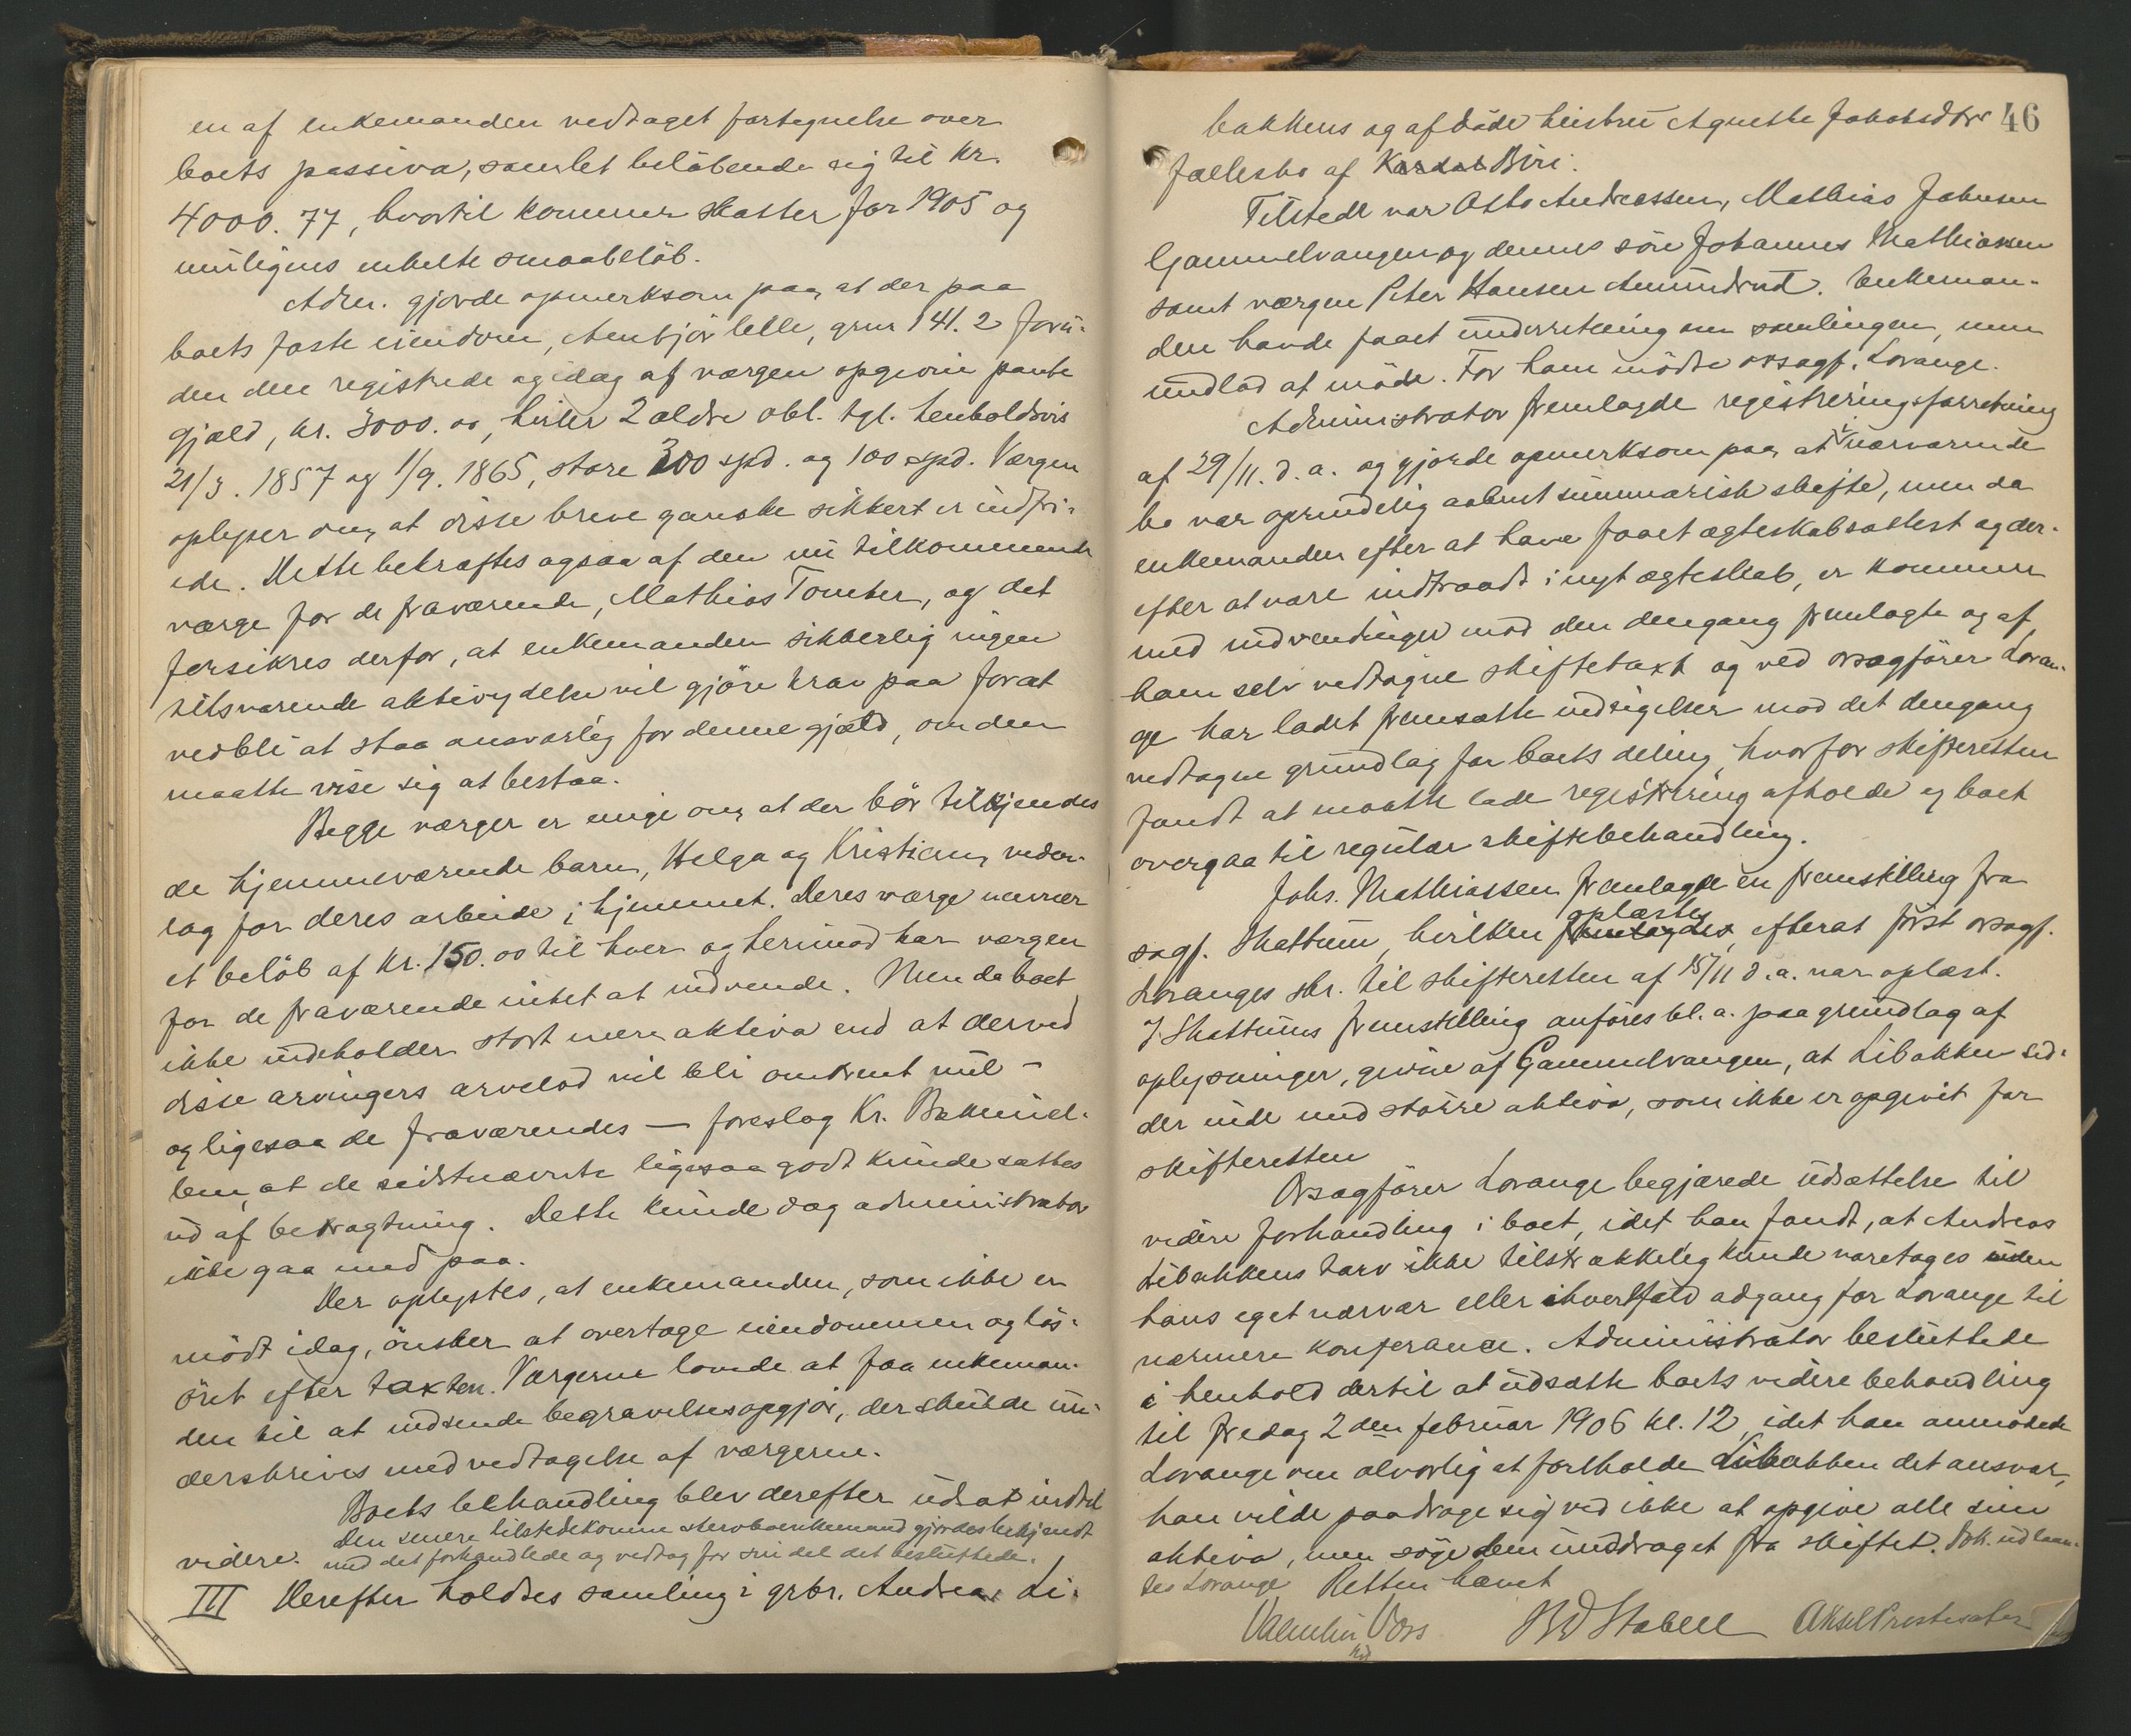 en af enkemanden vedtaget fortegnelse over
boets passiva, samlet beløbende sig til kr.
4000.77, hvortil kommer skatter for 1905 og
muligens enkelte smaabeløb.
Adm. gjorde opmerksom paa, at der paa
boets faste eiendom, lille, grnr 141.2 foru-
den den registrede og idag af værgen opgivne pante
gjæld, kr. 3000.00, hefter 2 ældre obl. tgl. henholdsvis
21/3. 1857 og 1/9. 1865, store 300 spd. og 100 spd. Værgen
oplyser om, at disse breve ganske sikkert er indfri-
ede. Dette bekræftes ogsaa af den nu tilkommende
værge for de fraværende, Mathias Tomter, og det
forsikres derfor, at enkemanden sikkerlig ingen
tilsvarende aktivydelse vil gjøre krav paa for at
vedbli at staa ansvarlig for denne gjæld, om den
maatte vise sig at bestaa.
Begge værger er enige om, at der bør tilkjendes
de hjemmeværende barn, Helga og Kristian, veder-
lag for deres arbeide i hjemmet. Deres værge nævner
et beløb af kr. 150.00 til hver og herimod har værgen
for de fraværende intet at indvende. Men da boet
ikke indeholder stort mere aktiva end at derved
disse arvingers arvelod vil bli omtrent nul -
og ligesaa de fraværendes - foreslog Kr.
at de sidstnævnte ligesaa godt kunde sættes
ud af betragtning. Dette kunde dog administrator
ikke gaa med paa.
Der oplystes, at enkemanden, som ikke er
mødt idag, ønsker at overtage eiendommen og løs-
øret efter taxten. Værgerne lovede at faa enkeman-
den til at indsende begravelsesopgjør, der skulde un-
derskrives med vedtagelse af værgerne.
Boets behandling blev derefter udsat indtil
den senere tilstedekomne stervboenkemand gjordes bekjendt
videre. med det forhandlede og vedtog for sin del det besluttede.
III Derefter holdtes samling i grbr. Andreas Li-
46
bakkens og afdøde hustru Agnethe Jakobsdtrs
fællesbo af Kardal Biri.
Tilstede var Otto Andreassen, Mathias Johnsen
Gammelvangen og dennes søn Johannes Mathiassen
samt værgen Peter Hansen Amundrud. Enkeman-
den havde faaet underretning om samlingen, men
undlod at møde. For ham mødte orsagf. Lorange.
Administrator fremlagde registreringsforretning
af 29/11. d.a. og gjorde opmerksom paa, at nærværende
bo var oprindelig aabent summarisk skifte, men da
enkemanden efter at have faaet ægteskabsattest og der-
efter at være indtraadt i nyt ægteskab, er kommen
med indvendinger mod den dengang fremlagte og af
ham selv vedtagne skiftetaxt og ved orsagfører Loran-
ge har ladet fremsætte indsigelser mod det dengang
vedtagne grundlag for boets deling, hvorfor skifteretten
fandt at maatte lade registrering afholde og boet
overgaa til regulær skiftebehandling.
Johs. Mathiassen fremlagde en fremstilling fra
oplæstes
sagf. Skattum, hvilken fremlagdes, efterat først orsagf.
Loranges skr. til skifteretten af 15/11 d.a. var oplæst.
I Skattums fremstilling anføres bl.a. paa grundlag af
oplysninger, givne af Gammelvangen, at Libakken sid-
der inde med større aktiva, som ikke er opgivet for
skifteretten
Orsagfører Lorange begjærede udsættelse til
videre forhandling i boet, idet han fandt, at Andreas
Libakkens tarv ikke tilstrækkelig kunde varetages uden
hans eget nærvær eller ihvertfald adgang for Lorange til
nærmere konferance. Administrator besluttede
i henhold dertil at udsætte boets videre behandling
til fredag 2den februar 1906 kl. 12, idet han anmodede
Lorange om alvorlig at forholde Libakken det ansvar,
han vilde paadrage sig ved ikke at opgive alle sine
aktiva, men søge dem unddraget fra skiftet. Dok. udlaan-
tes Lorange Retten hævet
Valentin Voss Stabell Aksel Præstesæter